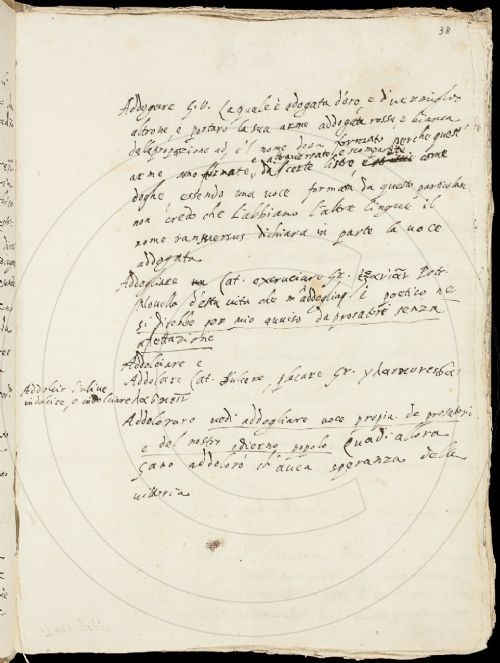 38
Addogare G.V. la quale è adogata d'oro, e di vermiglio
altrove, e portaro la sua arme addogata rossa e bianca
dalla propazione ad, e'l nome doga formato perche quest'
attraversate, e scompartite
arme sono formate, da certe liste come
doghe essendo una voce formata da questo particolare
non credo che l'abbiano l'altre lingue il
nome transversus dichiara in parte la voce
addogata
Addogliare Lat. excruciare Gr. Petr.
Novello d'esta vita che m'addoglia è poetico ne
si direbbe per mio avviso da prosatori senza
afettazione
Addolciare e
Addolcare Lat. Dulcere, placare Gr.
Addolcir
indolcire, e indolciare
Addolorare vedi addogliare voce propia de prosatori
e del nostro odierno popolo Quadi allora
Gano addolorò ch'avea speranza della
vittoria